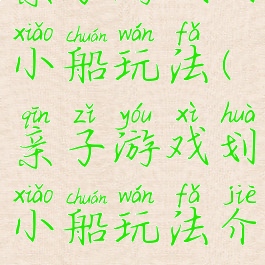 xiǎo chuán wán fǎ
小船玩法(
qīn zǐ yóu xì huà
亲子游戏划
xiǎo chuán wán fǎ jiè
小船玩法介